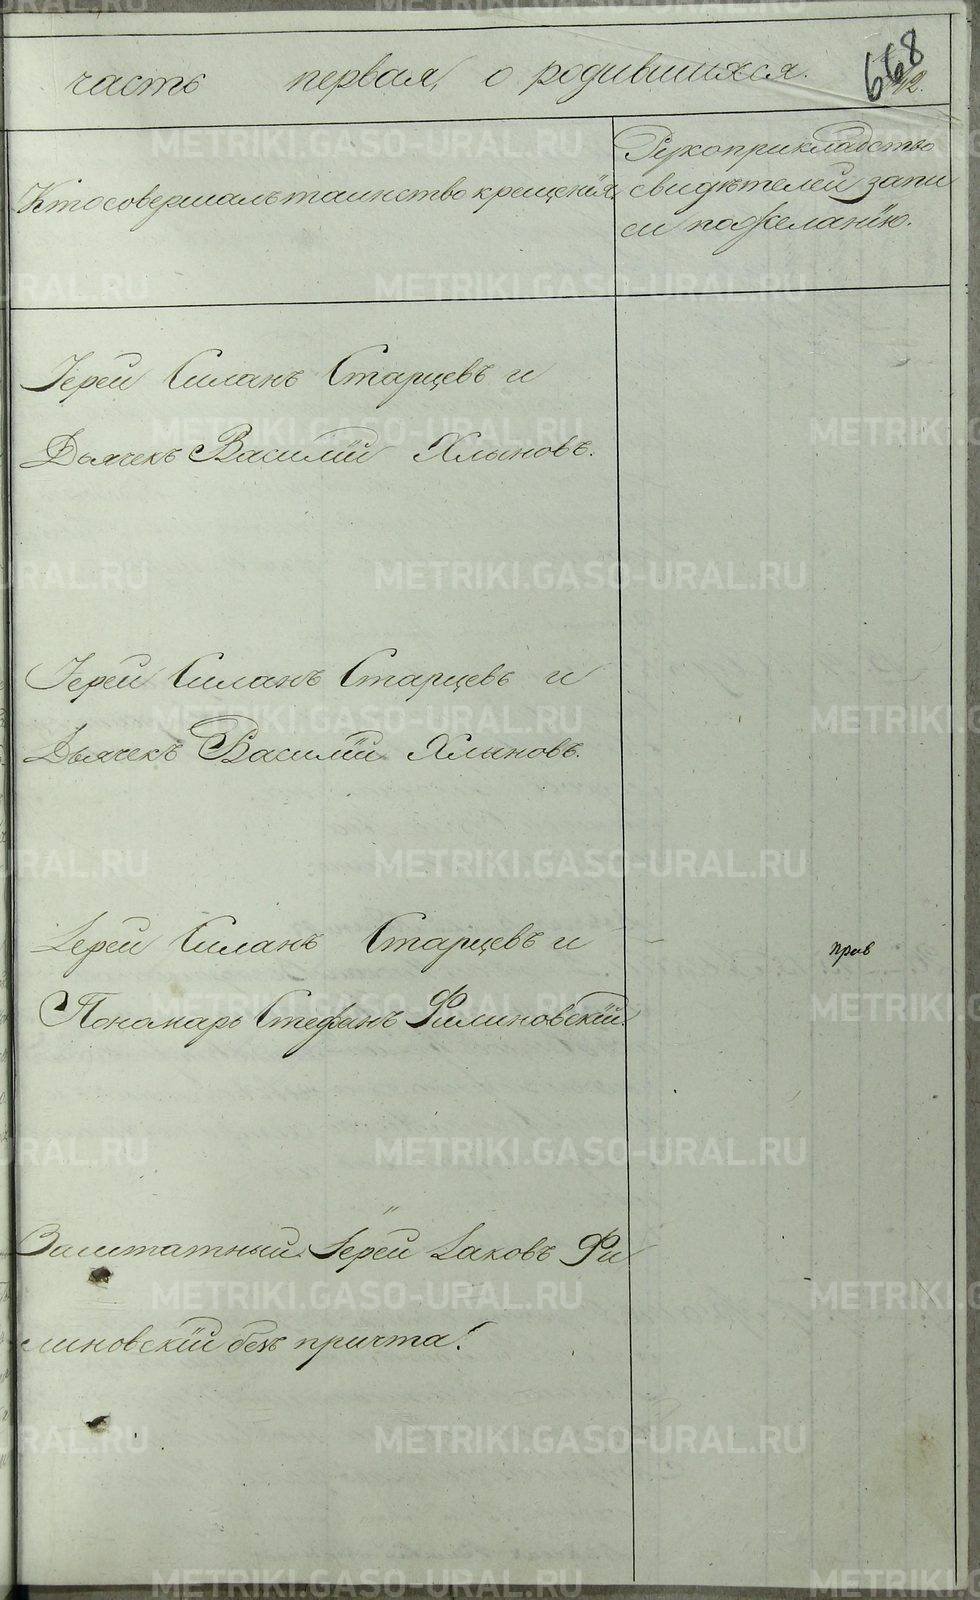 668
часть первая, о родившихся. 12.
Кто совершалъ таинство крещенія.
Рукоприкладство
свидѣтелей запи
си по желанію.
Іерей Силанъ Старцевъ и
Дьячекъ Василій Хлыновъ.
Іерей Силанъ Старцевъ и
Дьячекъ Василій Хлыновъ.
Іерей Силанъ Старцевъ и
Пономарь Стефанъ Филиновскій.
прав
Заштатный Іерей Іаковъ Фи
линовскій безъ причта.
METRIKI.GASO-URAL.RU